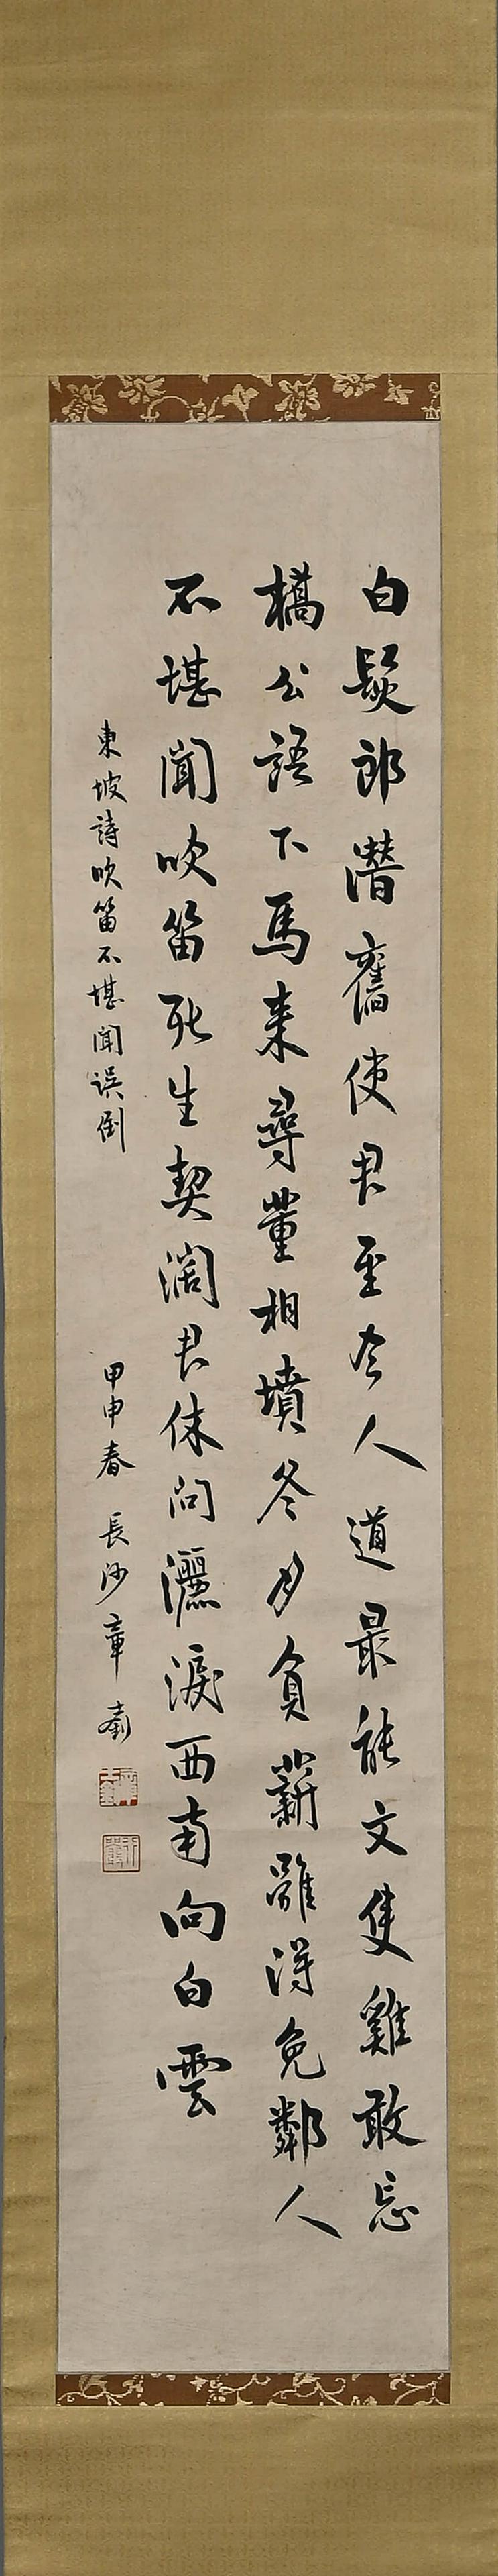 白髮郎潛舊使君至今人道最能文隻雞敢忘
橋公語下馬來尋董相墳冬月負薪雖得免鄰人
不堪聞吹笛死生契闊君休問灑淚西南向白雲
東坡詩吹笛不堪聞誤倒 甲申春 長沙章士釗
章士釗
行嚴